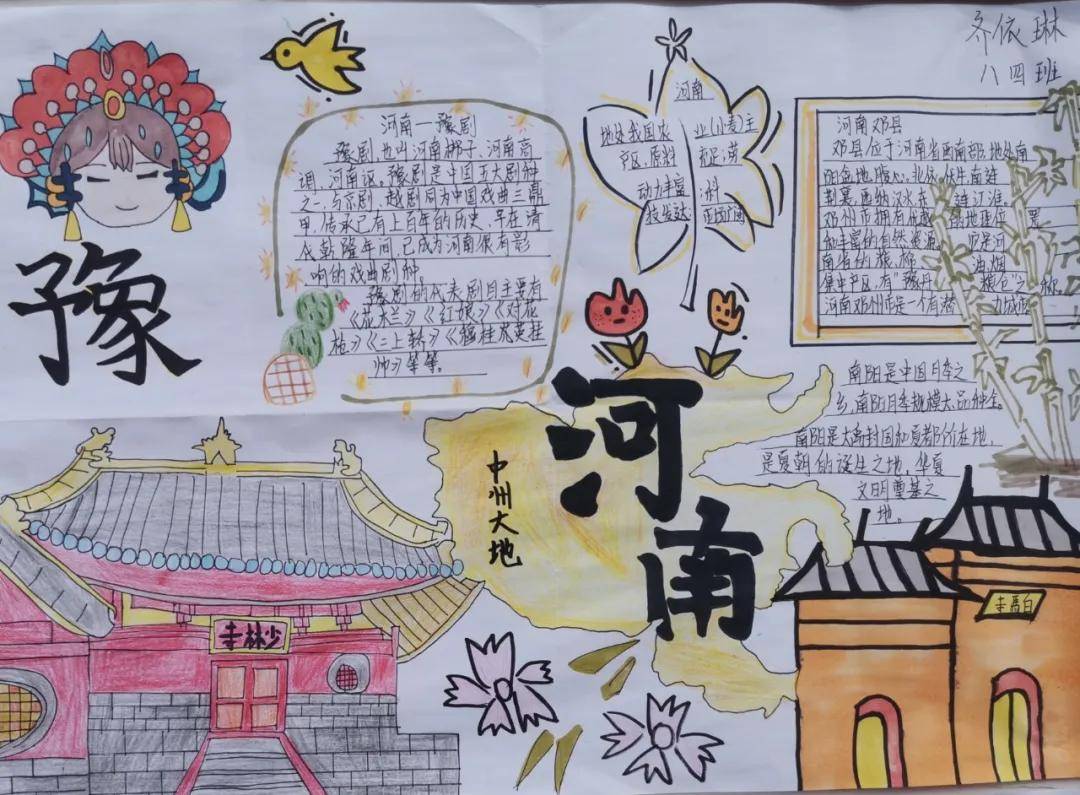 齐依琳
八四班
豫
河南—豫剧
豫剧,也叫河南梆子、河南高
调、河南讴。豫剧是中国五大剧种
之一,与京剧、越剧同为中国戏曲三鼎
甲,传承已有上百年的历史、早在清
代乾隆年间,已成为河南很有影
响的戏曲剧种。
豫剧的代表剧目主要有
《花木兰》《红娘》《对花
枪》《三上轿》《穆桂英挂
帅》等等。
河南
地处我国农 业(小麦)主
产区,原料 充足,劳
动力丰富 ,科
技发达, 市场广阔
河南邓县
邓县位于河南省西南部,地处南
阳盆地腹心,北依伏牛,南连
荆襄,西纳汉水,东 连江淮。
邓州市拥有优越 的地理位 置
和丰富的自然资源 ,
南省的粮、棉 油、烟
集中产区,有"豫丹 粮仓"之称,
河南邓州市是一个有潜 力城市
南阳是中国月季之
乡,南阳月季规模大、品种全。
南阳是大禹封国和夏都所在地,
是夏朝的诞生之地,华夏
文明奠基之
地。
中州大地
河南
少林寺
白馬寺